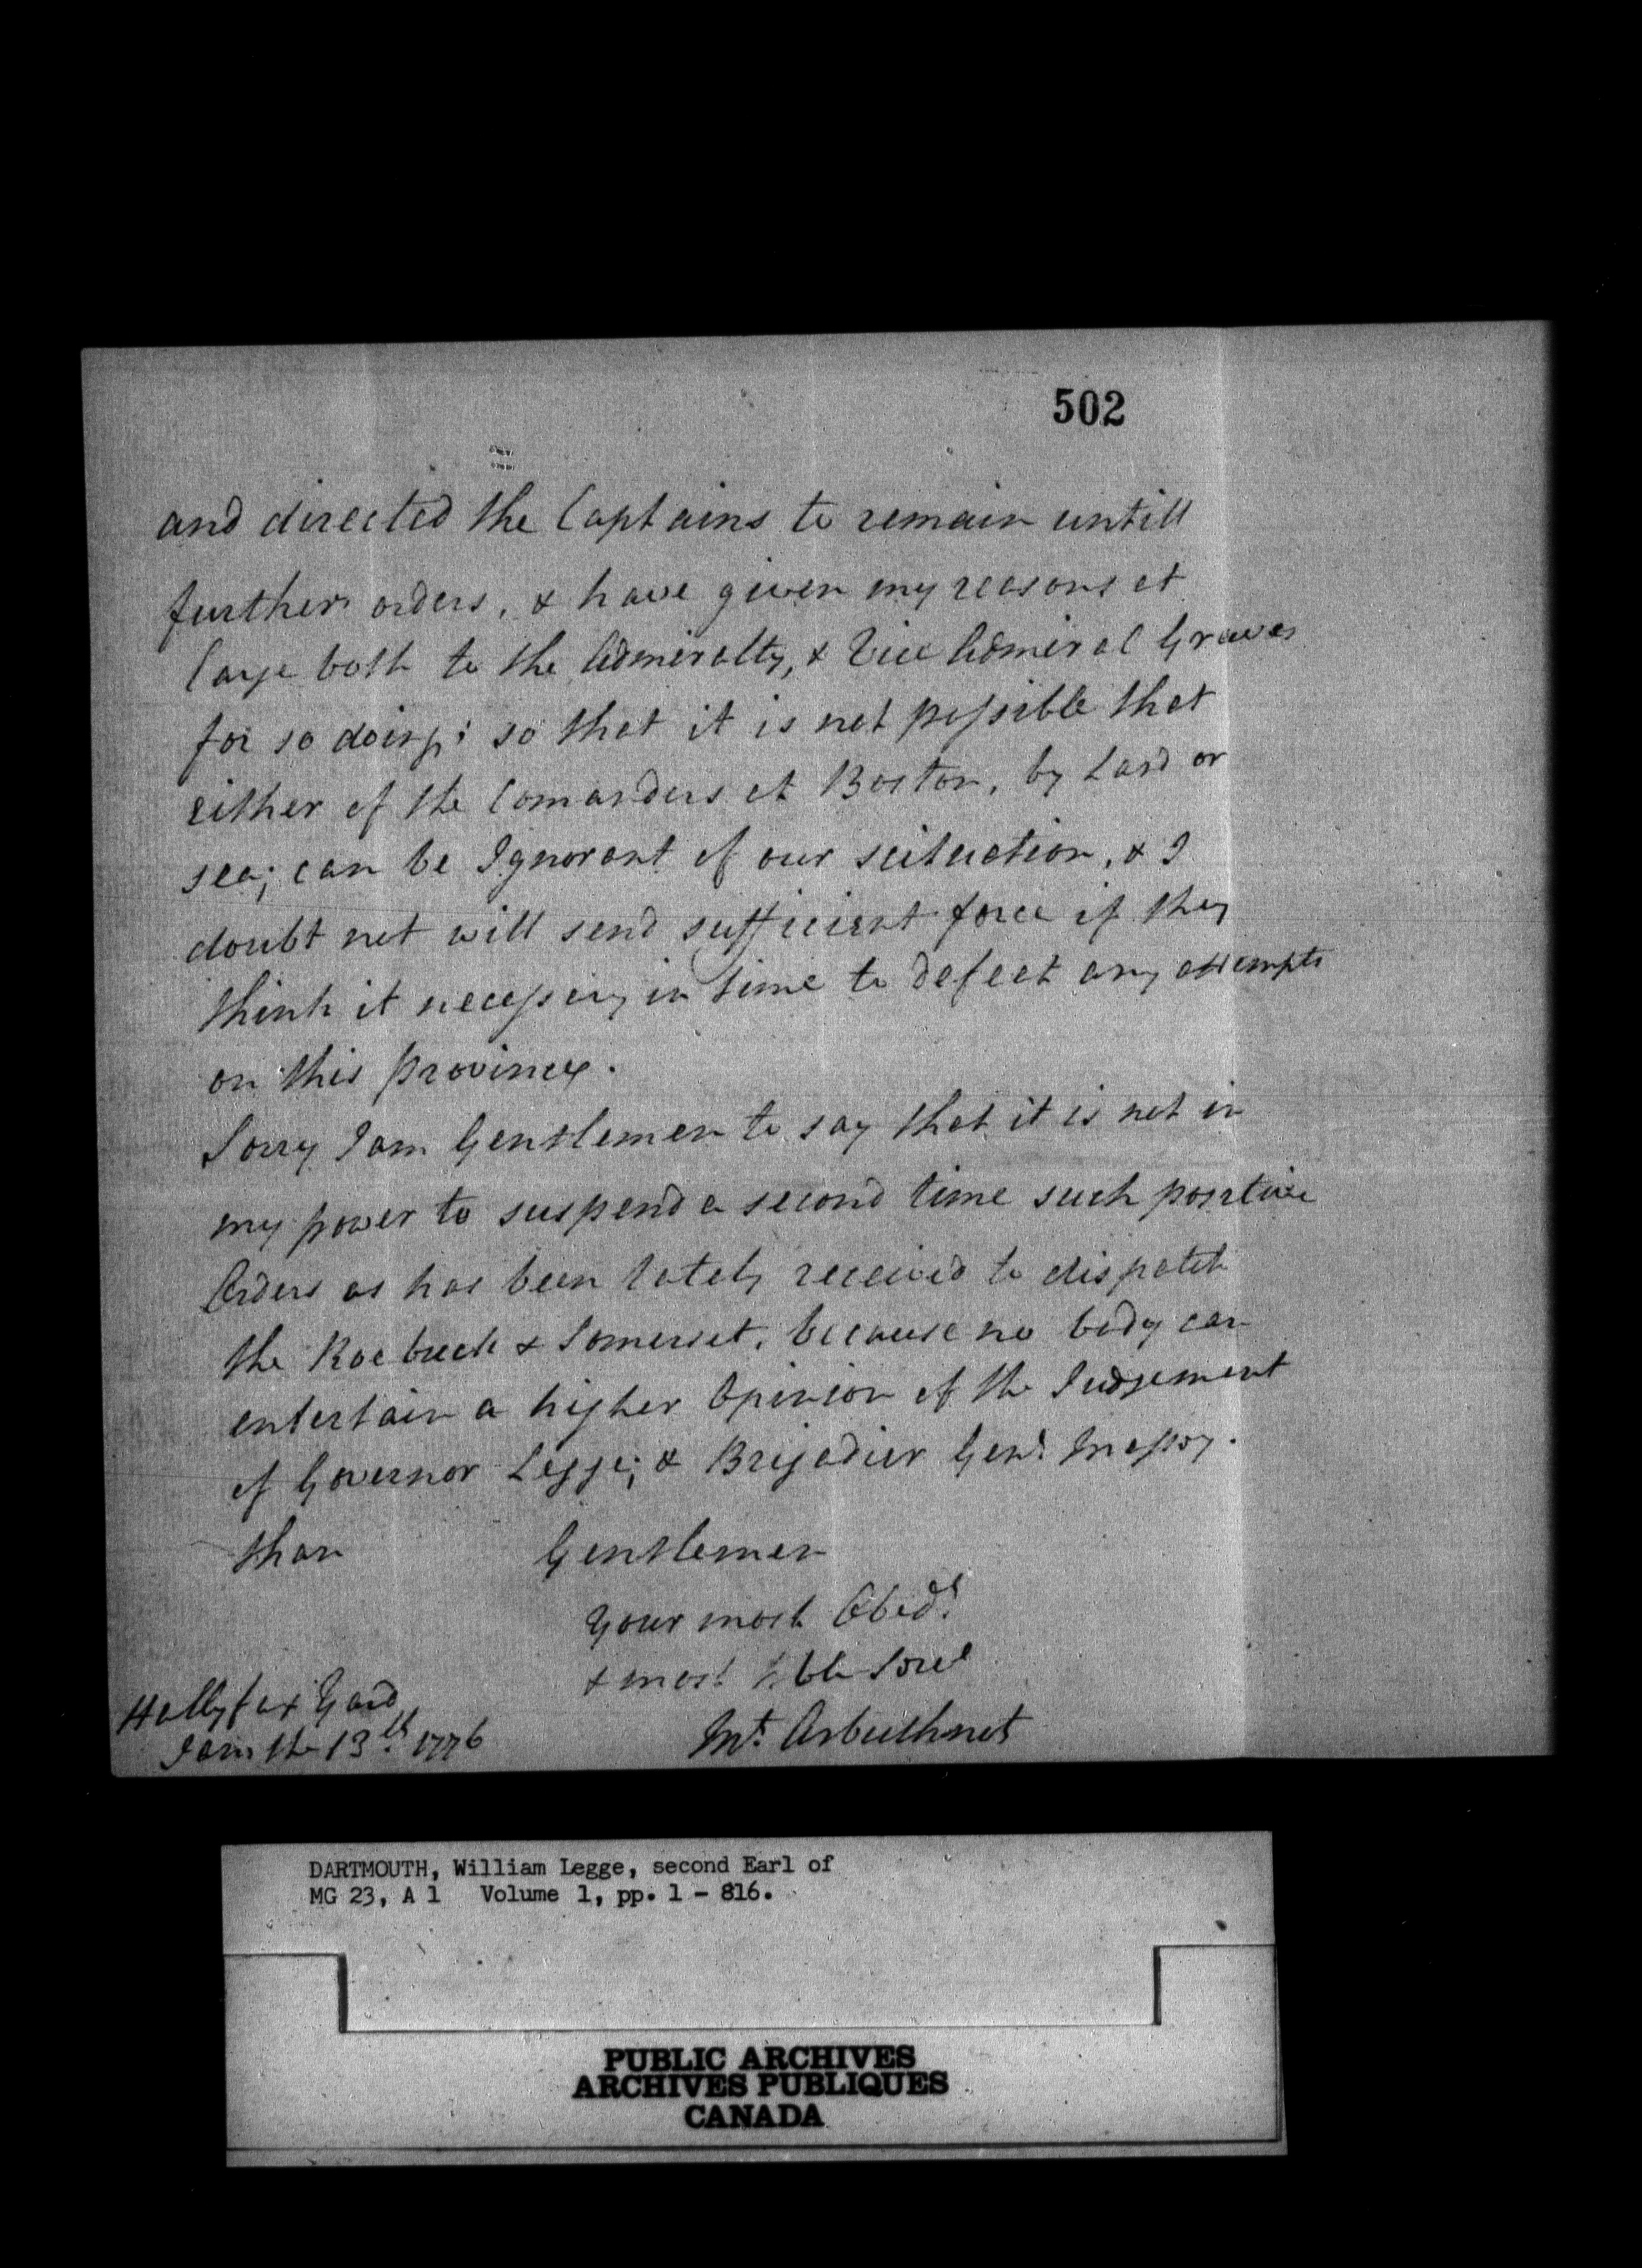 502
and directed the Captains to remain untill
further orders, & have given my reasons at
large both to the Admiralty, & Vice Admiral Graves
for so doing; so that it is not possible that
either of the Comanders at Boston, by Land or
sea; can be Ignorant of our scituation, & I
doubt not will send sufficient force if they
think it necessary in time to defeat any attempts
on this province.
Sorry I am Gentlemen to say that it is not in
my power to suspend a second time such positive
Orders as has been lately received to dispatch
the Roebuck & Somerset, because no body can
entertain a higher Opinion of the Judgement
of Governor Legge; & Brigadier Genl. Massey.
than Gentlemen
Your most Obedt
& most Hble Servt
Hallyfax Yard
Jan the 13th 1776
Mt. Arbuthnot
DARTMOUTH, William Legge, second Earl of
MG 23, A 1 Volume 1, pp. 1 - 816.
PUBLIC ARCHIVES
ARCHIVES PUBLIQUES
CANADA